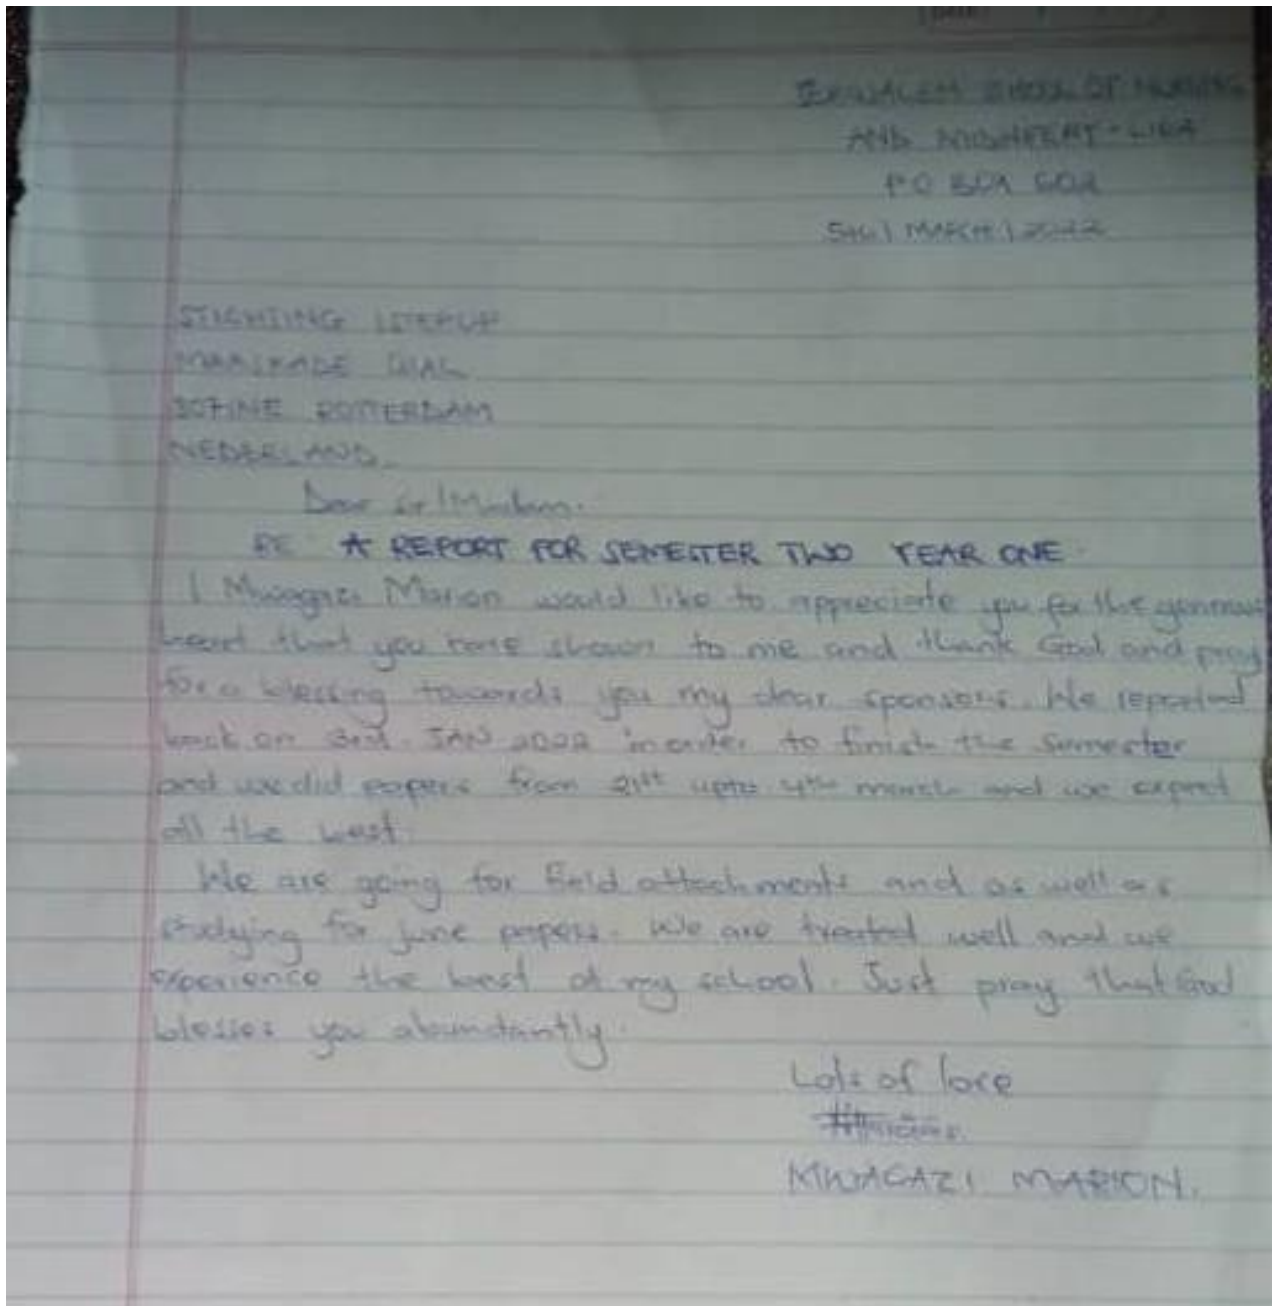 JERUSALEM SCHOOL OF NURSING
AND MIDWIFERY - LIRA
P.O BOX 602
5th | MARCH | 2022
STICHTING
ROTTERDAM
NEDERLAND.
Dear Sir/Madam.
RE A REPORT FOR SEMESTER TWO YEAR ONE.
I Mwagazi Marion would like to appreciate you for the
heart that you have shown to me and thank God and pray
for a blessing towards you my dear sponsors. We reported
back on 3rd JAN 2022 in order to finish the semester
and we did papers from 21st upto 4th march and we expect
all the best.
We are going for field attachments and as well as
studying for june papers. We are treated well and we
experience the best at my school. Just pray that God
blesses you abundantly.
Lots of love
MWAGAZI MARION.